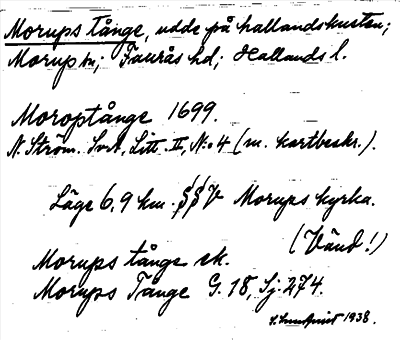 Morups tånge, udde på hallandskusten;
Morup sn; Faurås hd; Hallands l.
Moroptånge 1699.
N. Ström. SvA, Litt. II, N:o 4 (m. kartbeskr.).
Läge 6,9 km V Morups kyrka.
(Vänd!)
Morups tånge ek.
Morups Tånge G. 18, Sj. 274.
S. Lundqvist 1938.